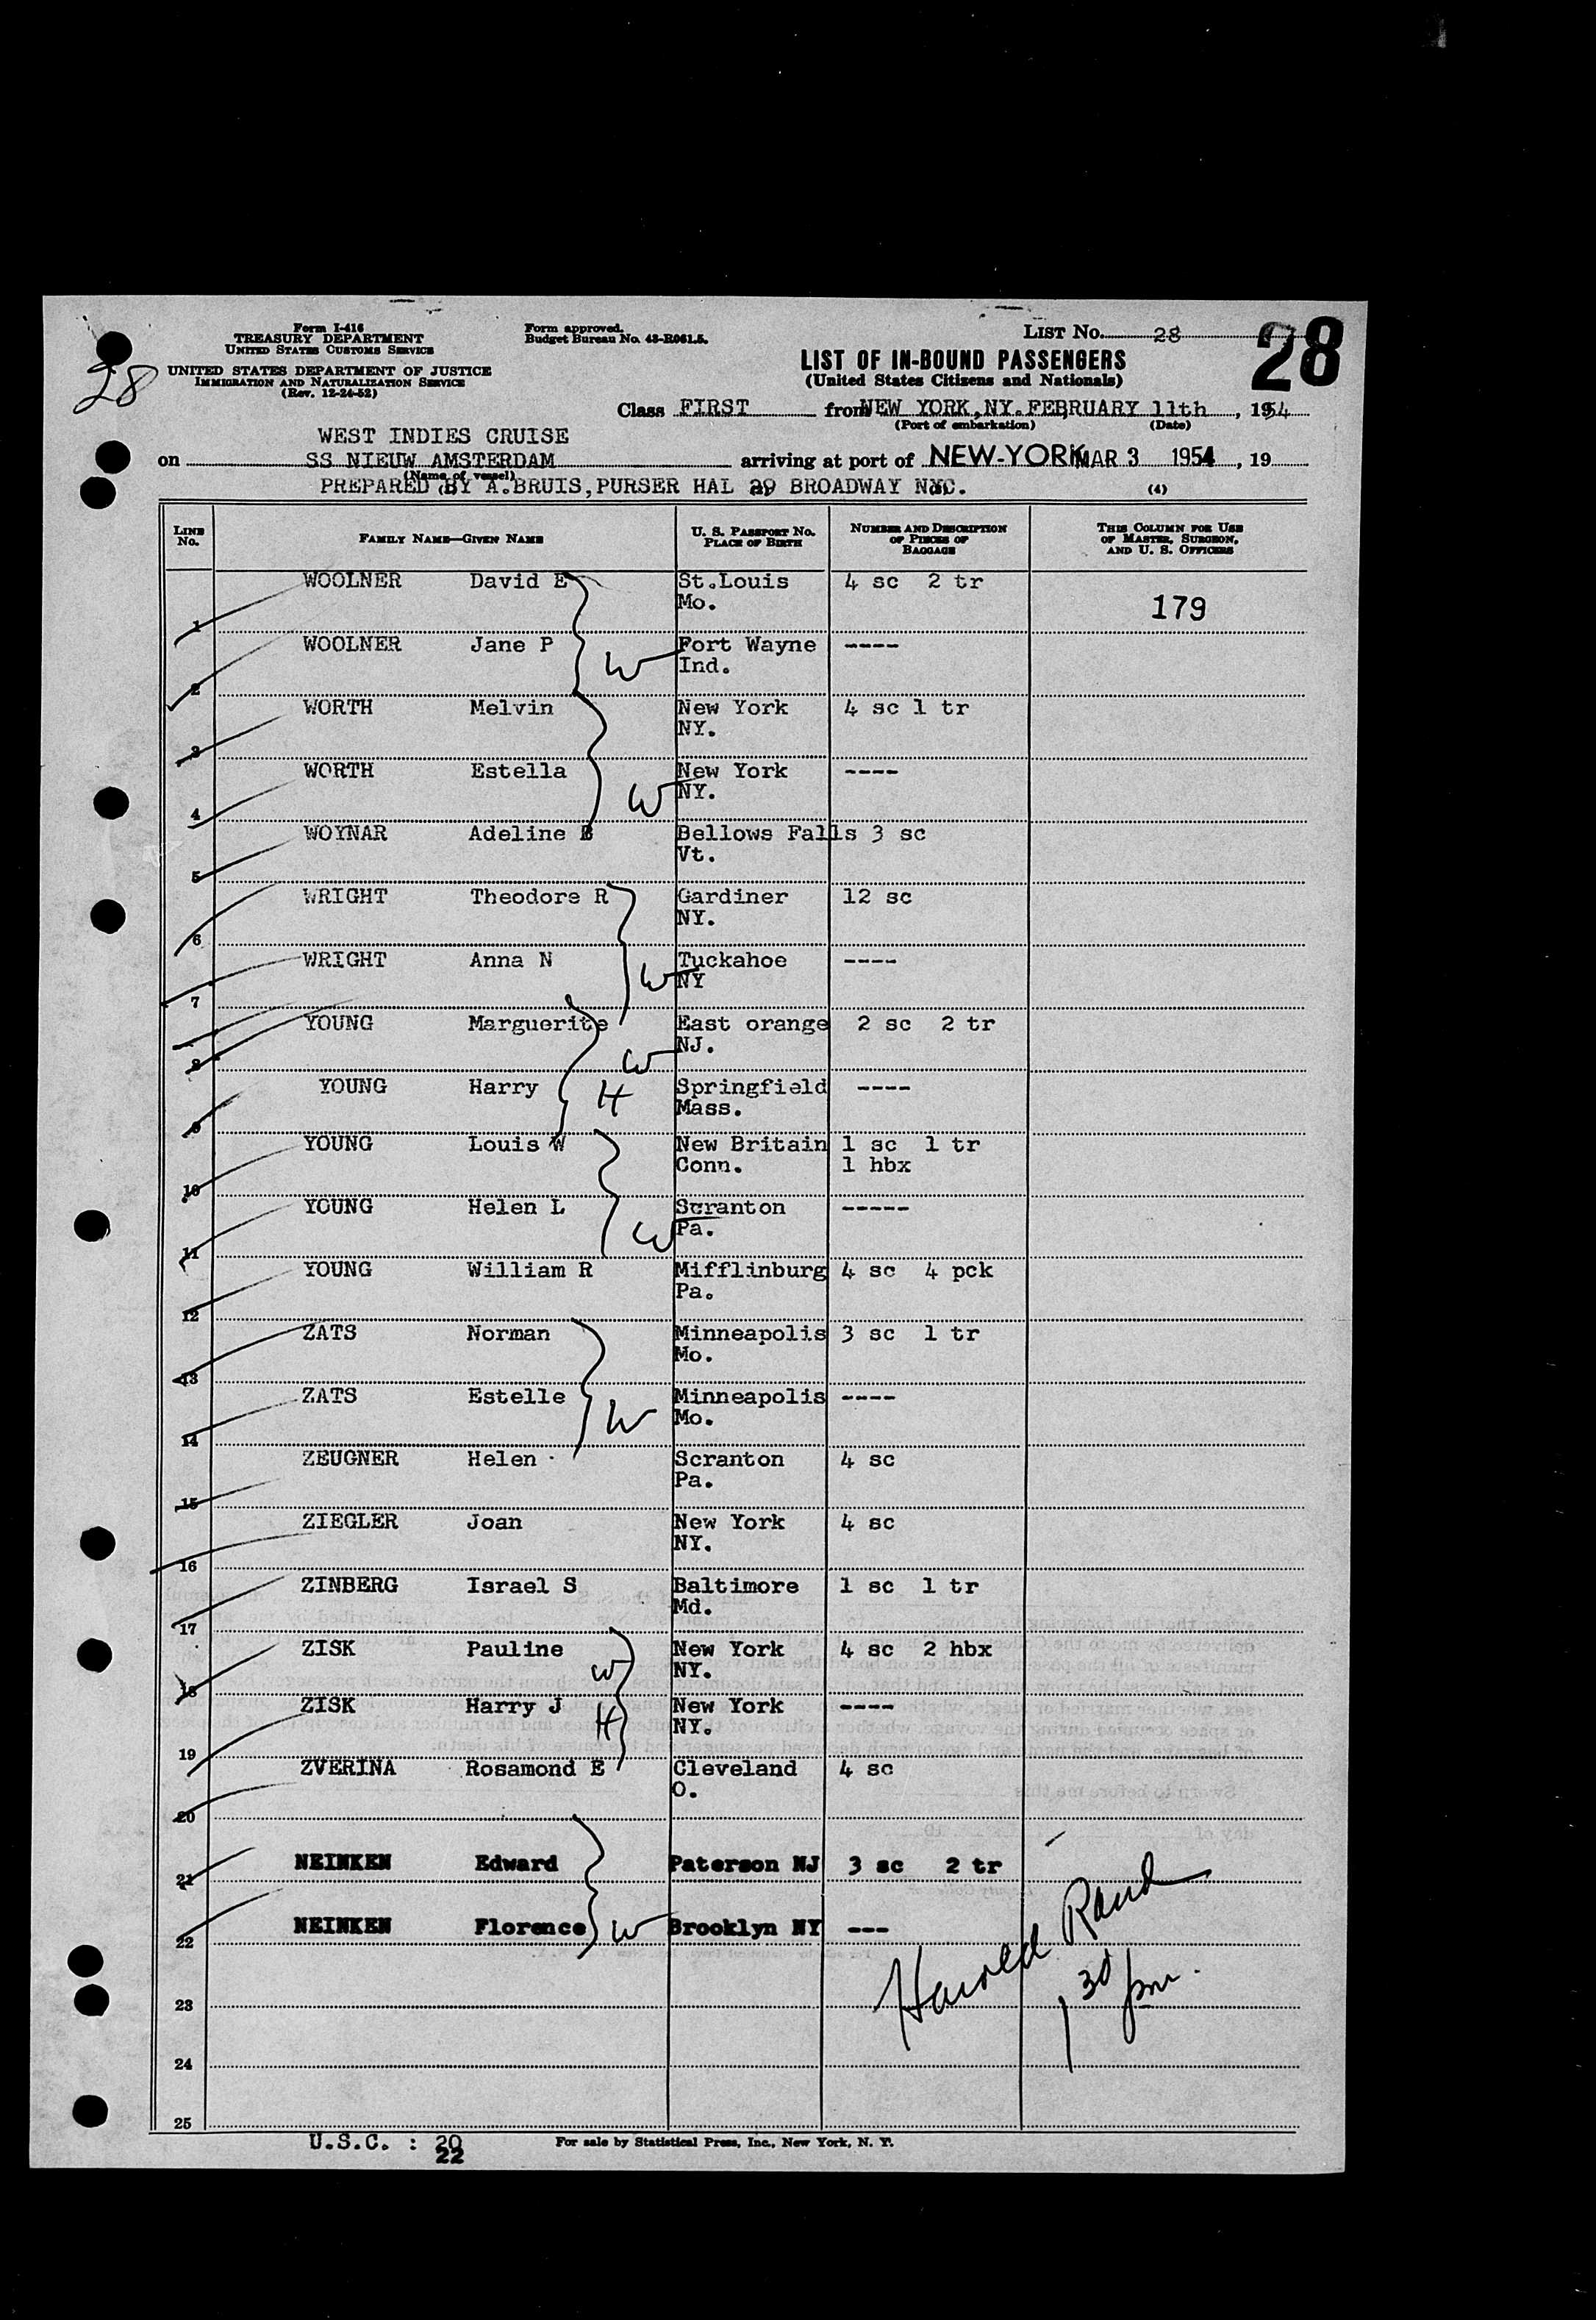 Form I-416
TREASURY DEPARTMENT
UNITED STATES CUSTOMS SERVICE
UNITED STATES DEPARTMENT OF JUSTICE
IMMIGRATION AND NATURALIZATION SERVICE
(Rev. 12-24-52)
28
Form approved.
Budget Bureau No. 43-R061.5.
LIST NO. 28
28
LIST OF IN-BOUND PASSENGERS
(United States Citizens and Nationals)
Class FIRST from NEW YORK, NY. FEBRUARY 11th, 1954
(Port of embarkation) (Date)
WEST INDIES CRUISE
on SS NIEUW AMSTERDAM arriving at port of NEW-YORK MAR 3 1954, 19
(Name of vessel)
PREPARED BY A.BRUIS, PURSER HAL 29 BROADWAY NYC. (4)
LINE NO. FAMILY NAME—GIVEN NAME U. S. PASSPORT NO. PLACE OF BIRTH NUMBER AND DESCRIPTION OF PIECES OF BAGGAGE THIS COLUMN FOR USE OF MASTER, SURGEON, AND U. S. OFFICERS
1 WOOLNER David E St.Louis Mo. 4 sc 2 tr 179
2 WOOLNER Jane P W Fort Wayne Ind. ----
3 WORTH Melvin New York NY. 4 sc 1 tr
4 WORTH Estella W New York NY. ----
5 WOYNAR Adeline B Bellows Falls Vt. 3 sc
6 WRIGHT Theodore R Gardiner NY. 12 sc
7 WRIGHT Anna N W Tuckahoe NY ----
8 YOUNG Marguerite W East orange NJ. 2 sc 2 tr
9 YOUNG Harry H Springfield Mass. ----
10 YOUNG Louis W New Britain Conn. 1 sc 1 tr 1 hbx
11 YOUNG Helen L W Scranton Pa. -----
12 YOUNG William R Mifflinburg Pa. 4 sc 4 pck
13 ZATS Norman Minneapolis Mo. 3 sc 1 tr
14 ZATS Estelle W Minneapolis Mo. ----
15 ZEUGNER Helen Scranton Pa. 4 sc
16 ZIEGLER Joan New York NY. 4 sc
17 ZINBERG Israel S Baltimore Md. 1 sc 1 tr
18 ZISK Pauline W New York NY. 4 sc 2 hbx
19 ZISK Harry J H New York NY. ----
20 ZVERINA Rosamond E Cleveland O. 4 sc
21 NEINKEN Edward Paterson NJ 3 sc 2 tr
22 NEINKEN Florence W Brooklyn NY ---
Harold Rand
1 30 pm.
23
24
25
U.S.C. : 20
22
For sale by Statistical Press, Inc., New York, N. Y.